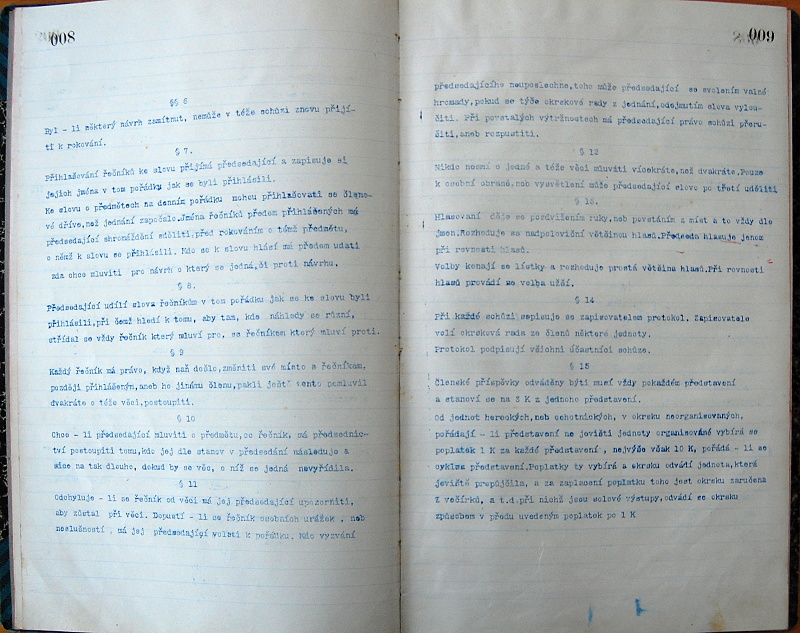 008
§§ 6
Byl - li některý návrh zamítnut, nemůže v téže schůzi znovu přijí-
ti k rokování.
§ 7.
Přihlašování řečníků ke slovu přijímá předsedající a zapisuje si
jejich jména v tom pořádku jak se byli přihlásili.
Ke slovu o předmětech na denním pořádku mohou přihlašovati se členo-
vé dříve,než jednání započalo.Jména řečníků předem přihlášených má
předsedající shromáždění sděliti,před rokováním o tomto předmětu,
o němž k slovu se přihlásili. Kdo se k slovu hlásí má předem udati
zda chce mluviti pro návrh o který se jedná,či proti návrhu.
§ 8.
Předsedající udílí slova řečníkům v tom pořádku jak se ke slovu byli
přihlásili,při čemž hledí k tomu, aby tam, kde náhledy se různí,
střídal se vždy řečník který mluví pro, se řečníkem který mluví proti.
§ 9
Každý řečník má právo, když naň došlo,změniti své místo s řečníkem,
později přihlášeným,aneb ho jinému členu,pakli ještě tento nemluvil
dvakráte o téže věci,postoupiti.
§ 10
Chce - li předsedající mluviti o předmětu,co řečník, má předsednic-
tví postoupiti tomu,kdo jej dle stanov v předsedání následuje a
sice na tak dlouho, dokud by se věc, o níž se jedná nevyřídila.
§ 11
Odchyluje - li se řečník od věci má jej předsedající upozorniti,
aby zůstal při věci. Dopustí - li se řečník osobních urážek , neb
neslušností , má jej předsedající volati k pořádku. Kdo vyzvání
009
předsedajícího neuposlechne,toho může předsedající se svolením valné
hromady,pokud se týče okrskové rady z jednání,odejmutím slova vylou-
čiti. Při povstalých výtržnostech má předsedající právo schůzi přeru-
šiti,aneb rozpustiti.
§ 12
Nikdo nesmí o jedné a téže věci mluviti vícekráte,než dvakráte.Pouze
k osobní obraně,neb vysvětlení může předsedající slovo po třetí uděliti
§ 13.
Hlasování děje se pozdvižením ruky,neb povstáním z míst a to vždy dle
jmen.Rozhoduje se nadpoloviční většinou hlasů.Předseda hlasuje jenom
při rovnosti hlasů.
Volby konají se lístky a rozhoduje prostá většina hlasů.Při rovnosti
hlasů provádí se volba užší.
§ 14
Při každé schůzi sepisuje se zapisovatelem protokol. Zapisovatele
volí okrsková rada ze členů některé jednoty.
Protokol podpisují všichni účastníci schůze.
§ 15
Členské příspěvky odváděny býti musí vždy pokaždéz představení
a stanoví se na 3 K z jednoho představení.
Od jednot hereckých,neb ochotnických, v okrsku neorganisovaných,
pořádají - li představení na jevišti jednoty organisované vybírá se
poplatek 1 K za každé představení , nejvýše však 10 K, pořádá - li se
cyklus představení.Poplatky ty vybírá a okrsku odvádí jednota,která
jeviště propůjčila, a za zaplacení poplatku toho jest okrsku zaručena
Z večírků, a t.d.při nichž jsou solové výstupy,odvádí se okrsku
způsobem v předu uvedeným poplatek po 1 K